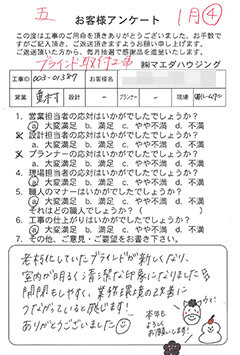 五
お客様アンケート
1月④
この度は工事のご用命を頂きありがとうございました。お手数で
すがご記入頂き、ご返送頂きますようお願い申し上げます。
ご返送頂いた方から、毎月抽選で感謝品を進呈いたします。
ブラインド取付工事
㈱マエダハウジング
工事ID 003-01387 お客様名
営業 設計 プランナー 現場
1. 営業担当者の応対はいかがでしたでしょうか？
a 大変満足 b. 満足 c. やや不満 d. 不満
2. 設計担当者の応対はいかがでしたでしょうか？
a. 大変満足 b. 満足 c. やや不満 d. 不満
3. プランナーの応対はいかがでしたでしょうか？
a. 大変満足 b. 満足 c. やや不満 d. 不満
4. 現場担当者の応対はいかがでしたでしょうか？
a 大変満足 b. 満足 c. やや不満 d. 不満
5. 職人のマナーはいかがでしたでしょうか？
a 大変満足 b. 満足 c. やや不満 d. 不満
それはどの職人でしょうか？(
6. 工事の仕上がりはいかがでしたでしょうか？
a 大変満足 b. 満足 c. やや不満 d. 不満
7. その他、ご意見・ご要望をお書き下さい。
老朽化していたブラインドが新しくなり、
室内が明るく清潔な印象になりました
開閉もしやすく、業務環境の改善に
つながっていると感じます!
ありがとうございました
本年も
よろしく
お願いします!